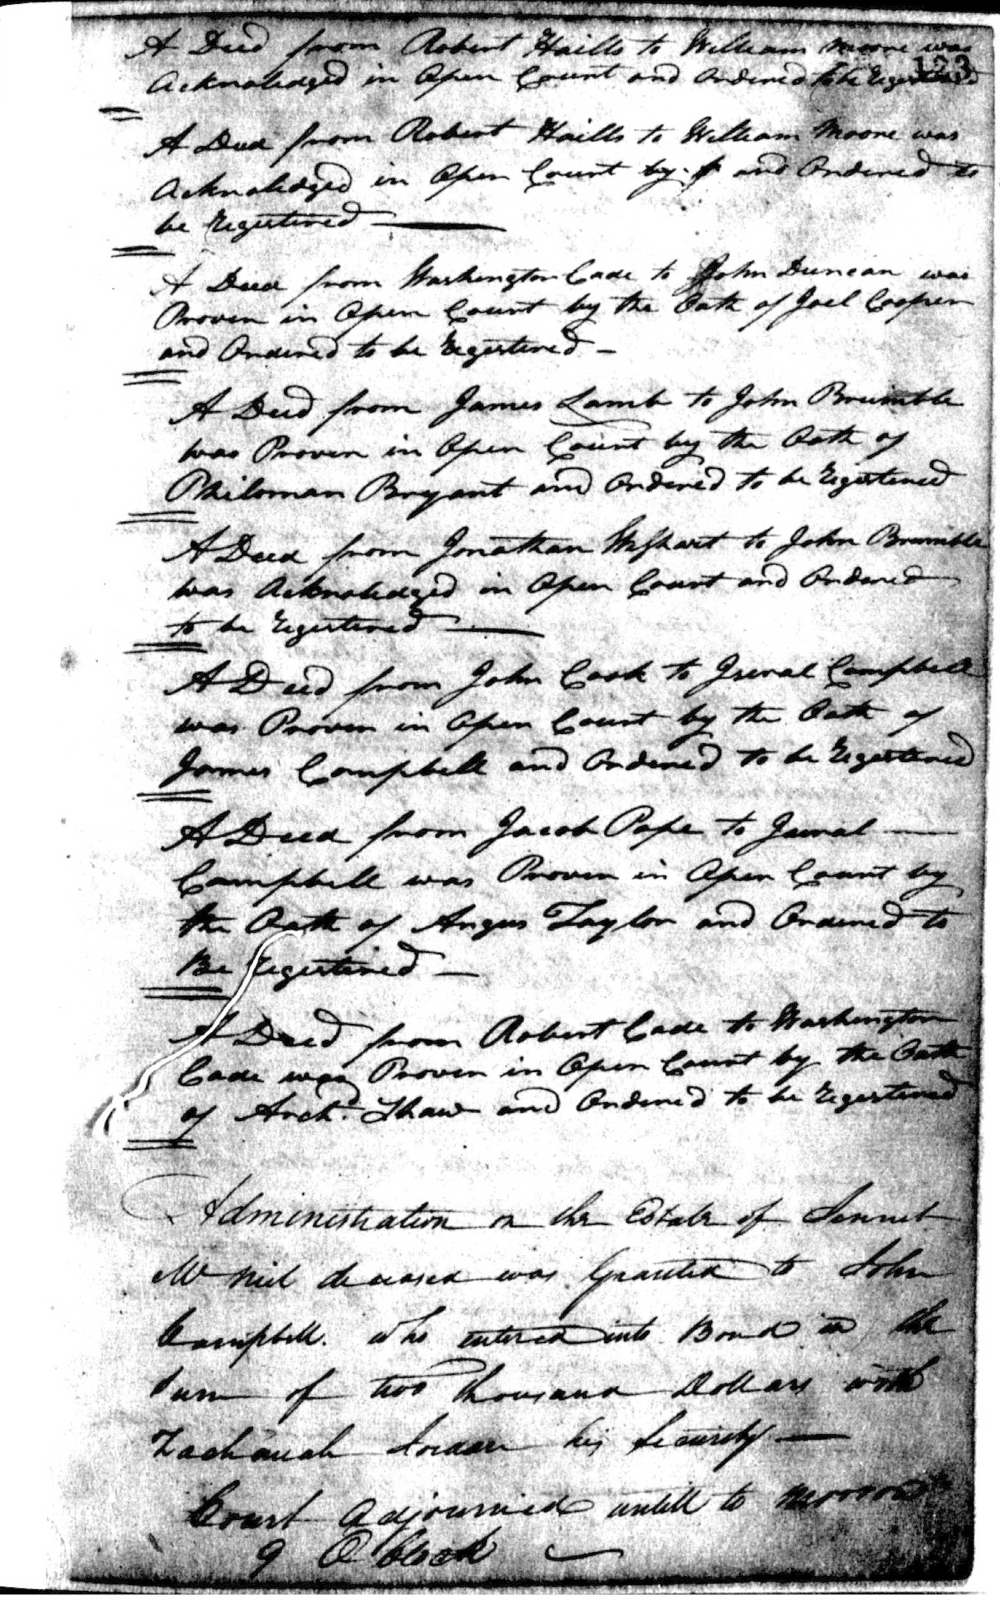 123
A Deed from Robert Haills to William Moore was
Acknaledged in Open Court and Ordered to be Regestered
A Deed from Robert Haills to William Moore was
Acknaledged in Open Court by and Ordered to
be Regestered
A Deed from Washington Cade to John Duncan was
Proven in Open Court by the Oath of Joel Cooper
and Ordered to be Regestered
A Deed from James Lamb to John Brumble
was Proven in Open Court by the Oath of
Philoman Bryant and Ordered to be Regestered
A Deed from Jonathan Wishart to John Brumble
was Acknaledged in Open Court and Ordered
to be Regestered
A Deed from John Cook to Isreal Campbell
was Proven in Open Court by the Oath of
James Campbell and Ordered to be Regestered
A Deed from Jacob Pope to
Campbell was Proven in Open Court by
the Oath of Angus Taylor and Ordered to
Be Regestered
A Deed from Robert Cade to Washington
Cade was Proven in Open Court by the Oath
of Archd. Shaw and Ordered to be Regestered
Administration on the Estate of
McNiel deceased was Granted to John
Campbell who entered into Bond in the
Sum of two thousand Dollars with
Zachariah Jordan his Security
Court adjourned untill to morrow
9 O Clock